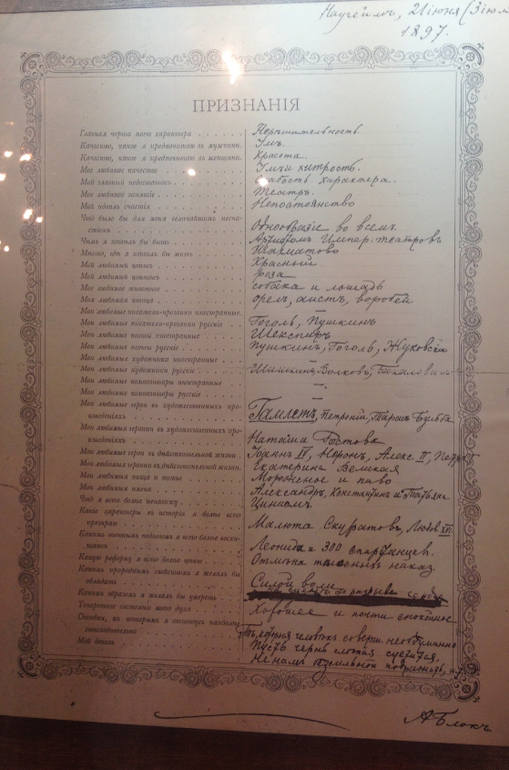 Наугеймъ, 21 іюня (3 іюл
1897.
ПРИЗНАНІЯ
Главная черта моего характера Нерѣшительность.
Качество, какое я предпочитаю въ мужчинѣ. Умъ.
Качество, какое я предпочитаю въ женщинѣ. Красота.
Мое любимое качество Умъ и хитрость.
Мой главный недостатокъ Слабость характера.
Мое любимое занятіе Театръ.
Мой идеалъ счастія Непостоянство
Что было бы для меня величайшимъ несча-
стіемъ Однообразіе во всемъ.
Чѣмъ я хотѣлъ бы быть Артистомъ Импер. театровъ
Мѣсто, гдѣ я хотѣлъ бы жить Шахматово
Мой любимый цвѣтъ Красный
Мой любимый цвѣтокъ роза
Мое любимое животное собака и лошадь
Моя любимая птица орелъ, аистъ, воробей
Мои любимые писатели-прозаики иностранные.
Мои любимые писатели-прозаики русскіе Гоголь, Пушкинъ
Мои любимые поэты иностранные Шекспиръ
Мои любимые поэты русскіе Пушкинъ, Гоголь, Жуковскій
Мои любимые художники иностранные —
Мои любимые художники русскіе Шишкинъ, Волковъ,
Мои любимые композиторы иностранные —
Мои любимые композиторы русскіе —
Мои любимые герои въ художественныхъ про-
изведеніяхъ Гамлетъ, Петроній, Тарасъ Бульба
Мои любимыя героини въ художественныхъ про-
изведеніяхъ Наташа Ростова
Мои любимые герои въ дѣйствительной жизни. Іоаннъ IV, Неронъ, Алекс. II, Петръ I
Мои любимыя героини въ дѣйствительной жизни. Екатерина Великая
Мои любимыя пища и питье Мороженое и пиво
Мои любимыя имена Александръ, Константинъ и Татьяна
Что я всего болѣе ненавижу Цинизмъ.
Какіе характеры въ исторіи я болѣе всего
презираю Малюта Скуратовъ,
Какимъ военнымъ подвигомъ я всего болѣе восхи-
щаюсь Леонида и 300 спартанцевъ.
Какую реформу я всего болѣе цѣню Отмѣна тѣлесныхъ наказ.
Какимъ природнымъ свойствомъ я желалъ бы
обладать Силой воли
Какимъ образомъ я желалъ бы умереть отъ разрыва сердца
Теперешнее состояніе моего духа Хорошее и почти спокойное
Ошибки, къ которымъ я отношусь наиболѣе
снисходительно Тѣ, которыя человѣкъ соверш. необдуманно
Мой девизъ Пусть чернь слѣпая суетится,
Не намъ
А Блокъ